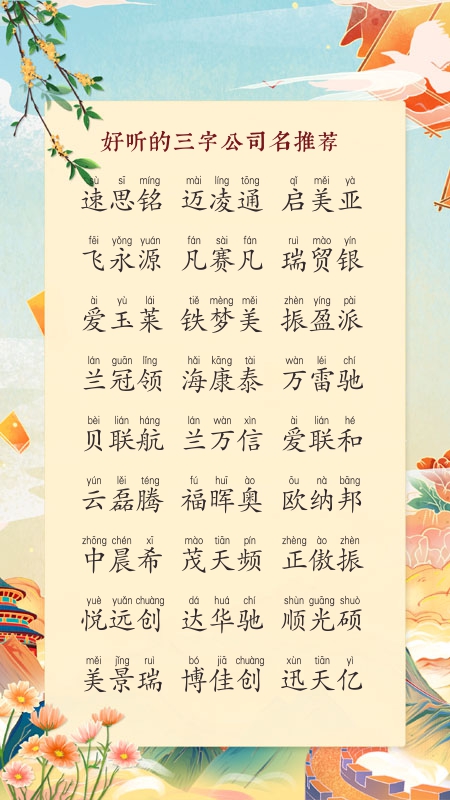 好听的三字公司名推荐
sù sī míng mài líng tōng qǐ měi yà
速思铭 迈凌通 启美亚
fēi yǒng yuán fán sài fán ruì mào yín
飞永源 凡赛凡 瑞贸银
ài yù lái tiě mèng měi zhèn yíng pài
爱玉莱 铁梦美 振盈派
lán guān lǐng hǎi kāng tài wàn léi chí
兰冠领 海康泰 万雷驰
bèi lián háng lán wàn xìn ài lián hé
贝联航 兰万信 爱联和
yún lěi téng fú huī ào ōu nà bāng
云磊腾 福晖奥 欧纳邦
zhōng chén xī mào tiān pín zhèng ào zhèn
中晨希 茂天频 正傲振
yuè yuǎn chuàng dá huá chí shùn guāng shuò
悦远创 达华驰 顺光硕
měi jǐng ruì bó jiā chuàng xùn tiān yì
美景瑞 博佳创 迅天亿